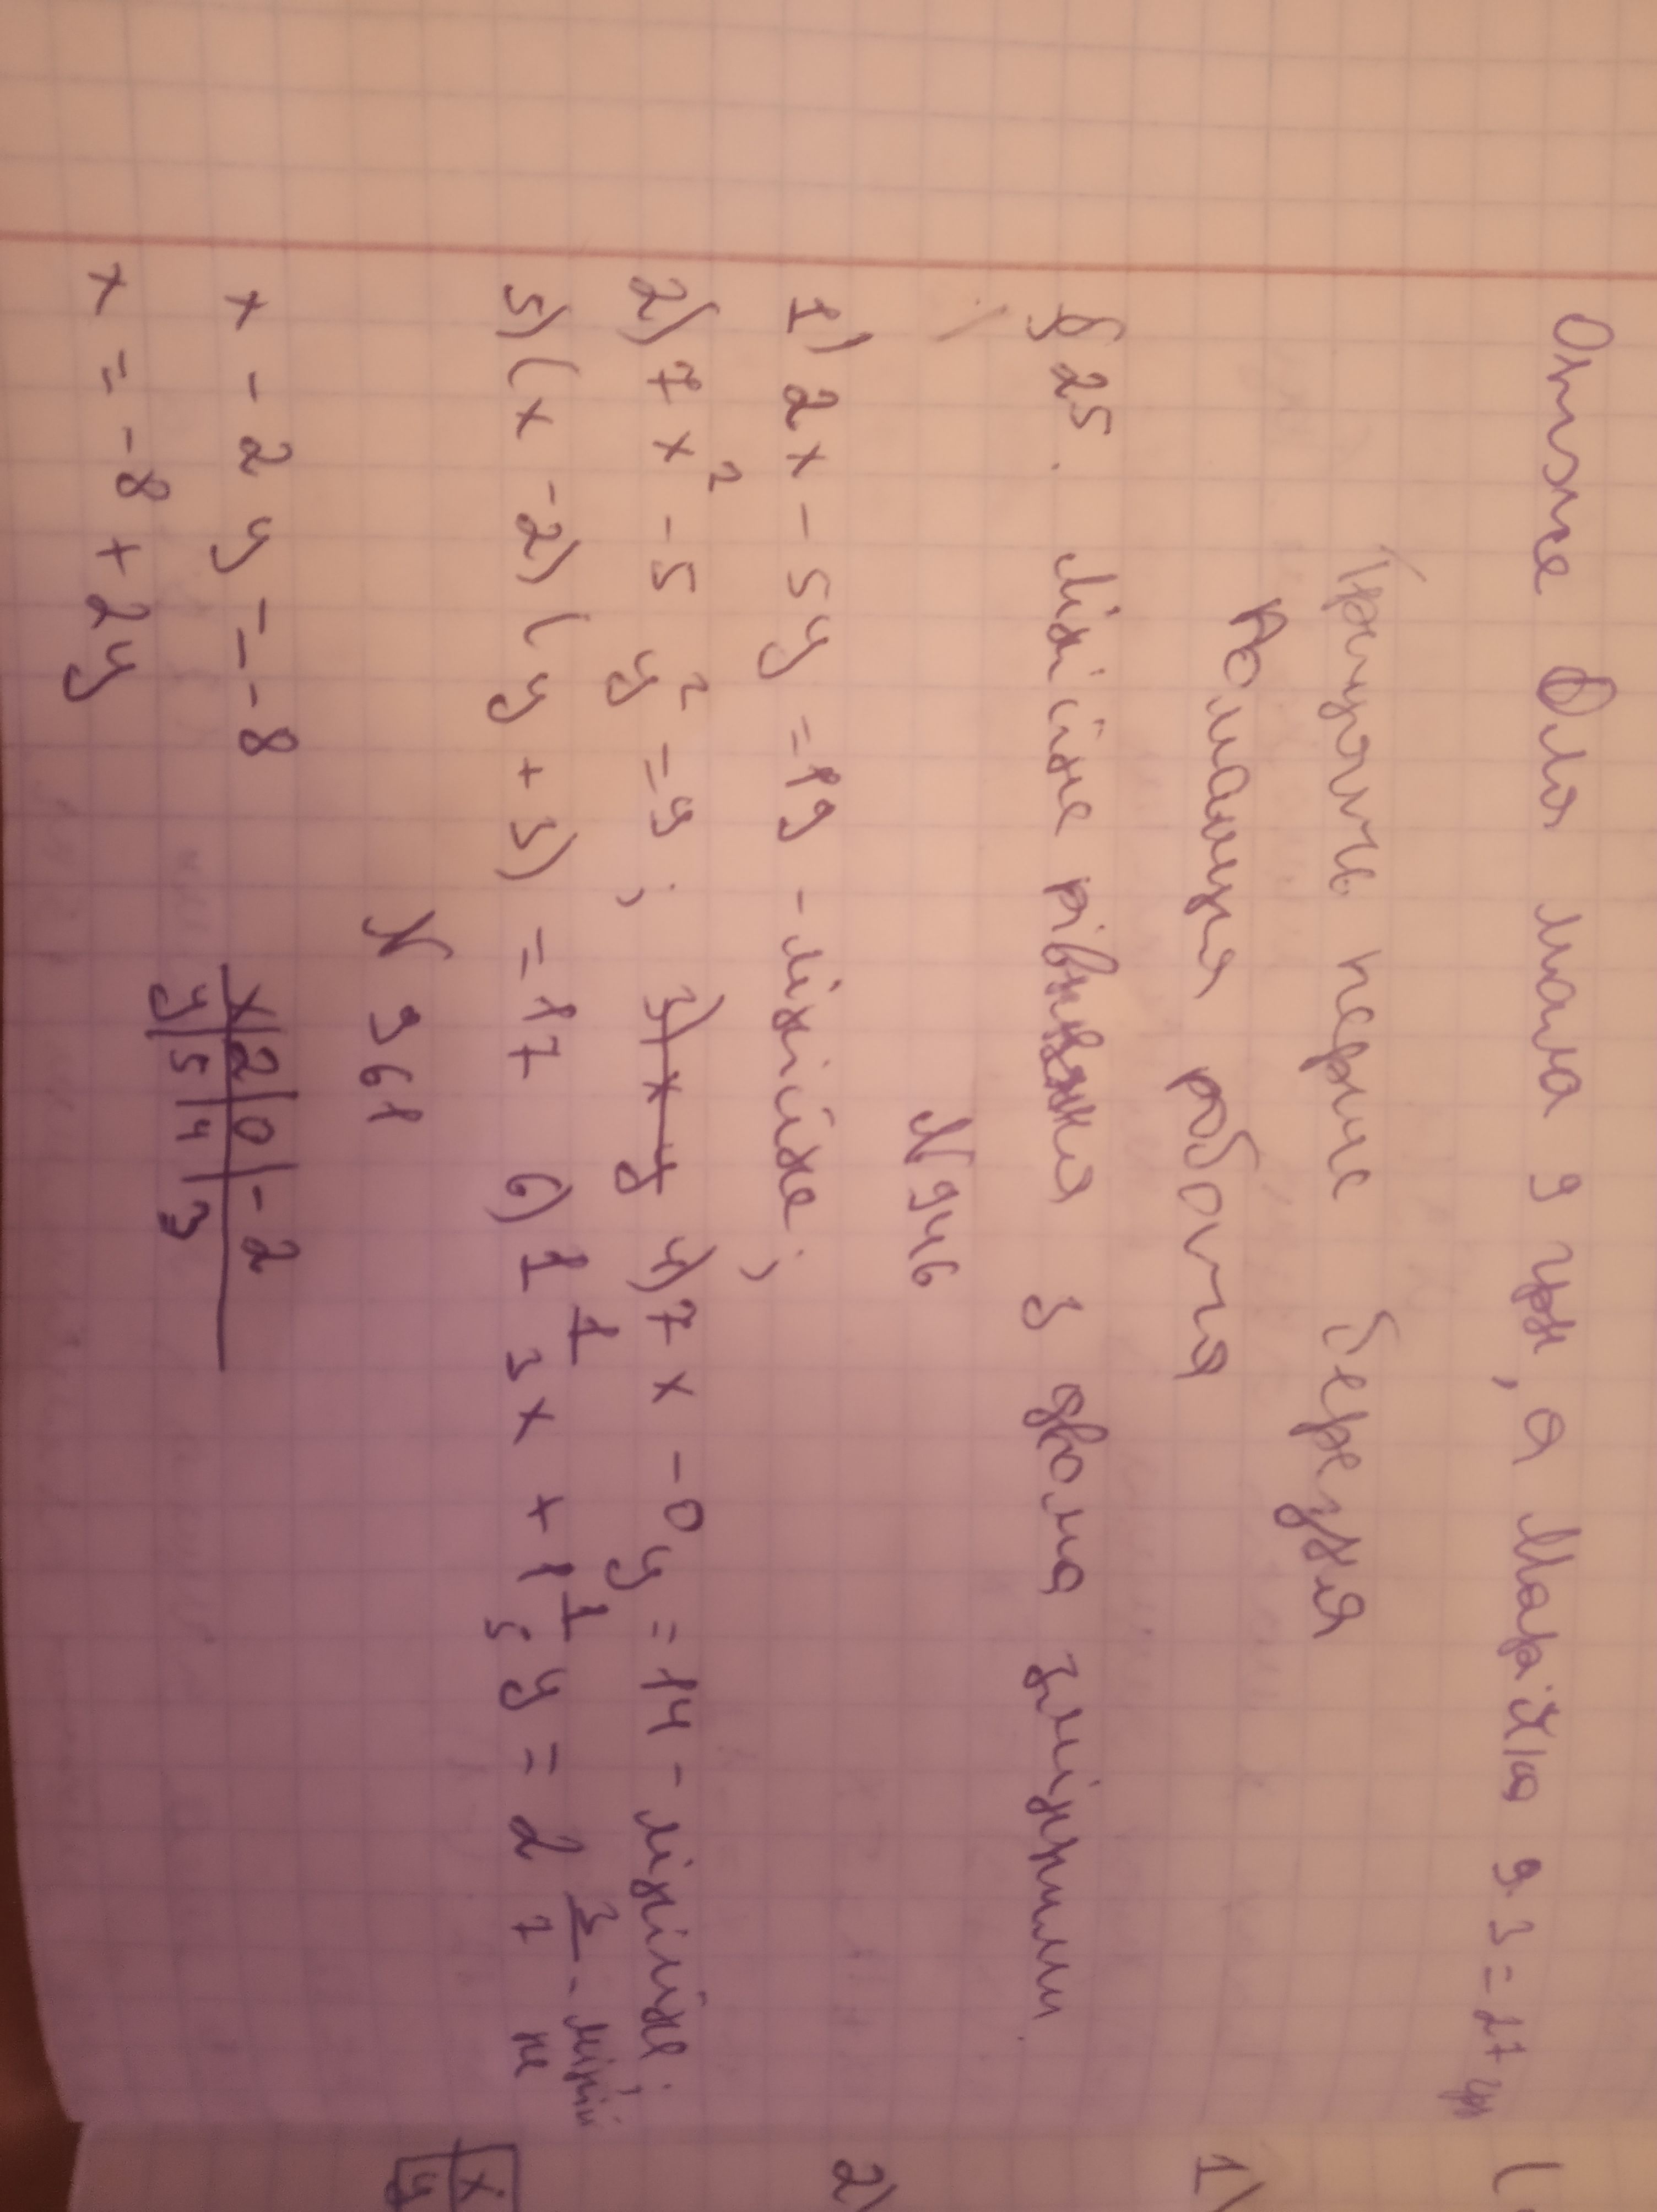 Отже Оля мала 9 грн, а Марічка 9·3=27 грн
Тридцять перше березня
Домашня робота
§ 25. Лінійне рівняння з двома змінними
N 946
1) 2x - 5y = 19 - лінійне;
2) 7x² - 5y² = 9; 3) xy 4) 7x - 0y = 14 - лінійне;
5) (x - 2)(y + 3) = 17 6) 1 1/3 x + 1 1/5 y = 2 3/7 - лінійне
N 961
x - 2y = -8
x = -8 + 2y
x | 2 | 0 | -2
y | 5 | 4 | 3
1)
2)
x
y